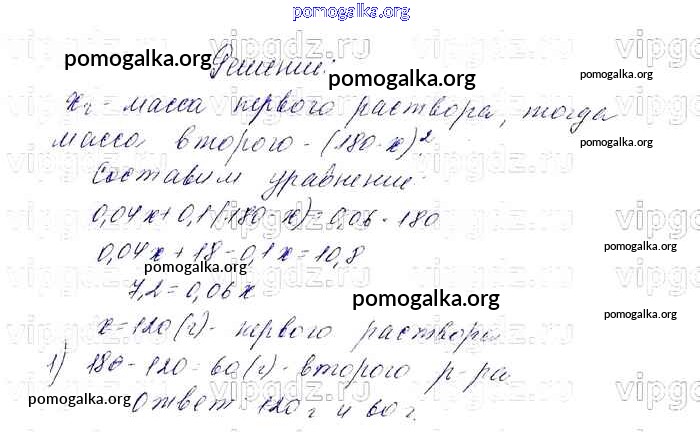 pomogalka.org
Решение:
pomogalka.org
pomogalka.org
pomogalka.org
х г - масса первого раствора, тогда
масса второго - (180-х) г
Составим уравнение:
pomogalka.org
0,04х+0,1(180-х)=0,06·180
0,04х+18-0,1х=10,8
pomogalka.org
pomogalka.org
7,2=0,06х
pomogalka.org
х=120(г)- первого раствора
pomogalka.org
1) 180-120=60(г)- второго р-ра
pomogalka.org
pomogalka.org
Ответ: 120 г и 60 г.
vipgdz.ru